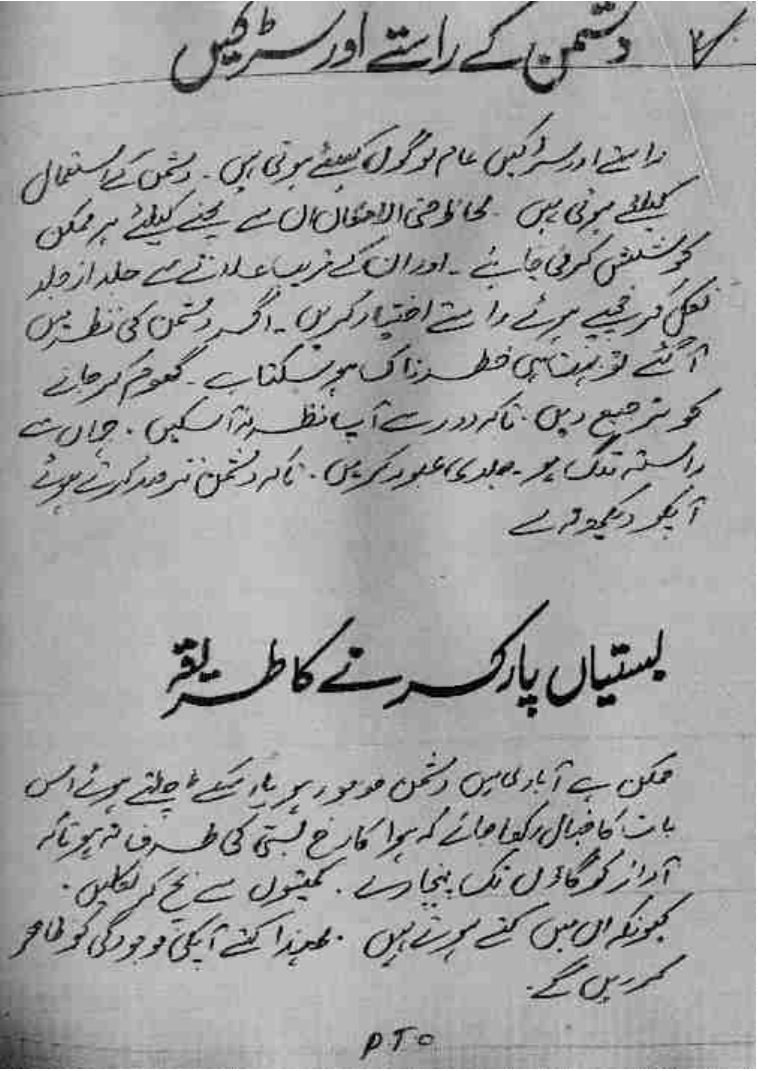 دشمن کے راستے اور سڑکیں
راستے اور سڑکیں عام لوگوں کیلئے ہوتی ہیں۔ دشمن کے استعمال
کیلئے ہوتی ہیں۔ لحاظ حتی الامکان ان سے بچنے کیلئے ہر ممکن
کوشش کرنی چاہئے۔ اور ان کے قریب علاقے سے جلد از جلد
نکل کر چھپے ہوئے راستے اختیار کریں۔ اگر دشمن کی نظر میں
آگئے تو بہت ہی خطرناک ہو سکتا ہے۔ گھوم کر جانے
کو ترجیع دیں۔ تاکہ دور سے آپ نظر نہ آسکیں۔ جہاں سے
راستہ تنگ ہو۔ جلدی عبور کریں۔ تاکہ دشمن کرتے ہوئے
آپکو دیکھ نہ لے
بستیاں پار کرنے کا طریقہ
ممکن ہے آبادی میں دشمن موجود ہو چلتے ہوئے اس
بات کا خیال رکھا جائے کہ ہوا کا رخ بستی کی طرف نہ ہو تاکہ
آواز کو گاؤں تک پہنچا دے۔ کھیتوں سے بچ کر نکلیں۔
کیونکہ ان میں کتے ہوتے ہیں۔ لھذا کتے آپکی موجودگی کو ظاھر
کر دیں گے۔
PTO